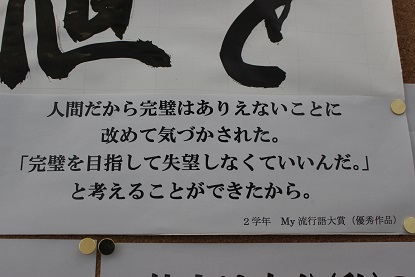 人間だから完璧はありえないことに
改めて気づかされた。
「完璧を目指して失望しなくていいんだ。」
と考えることができたから。
2学年 My流行語大賞（優秀作品）